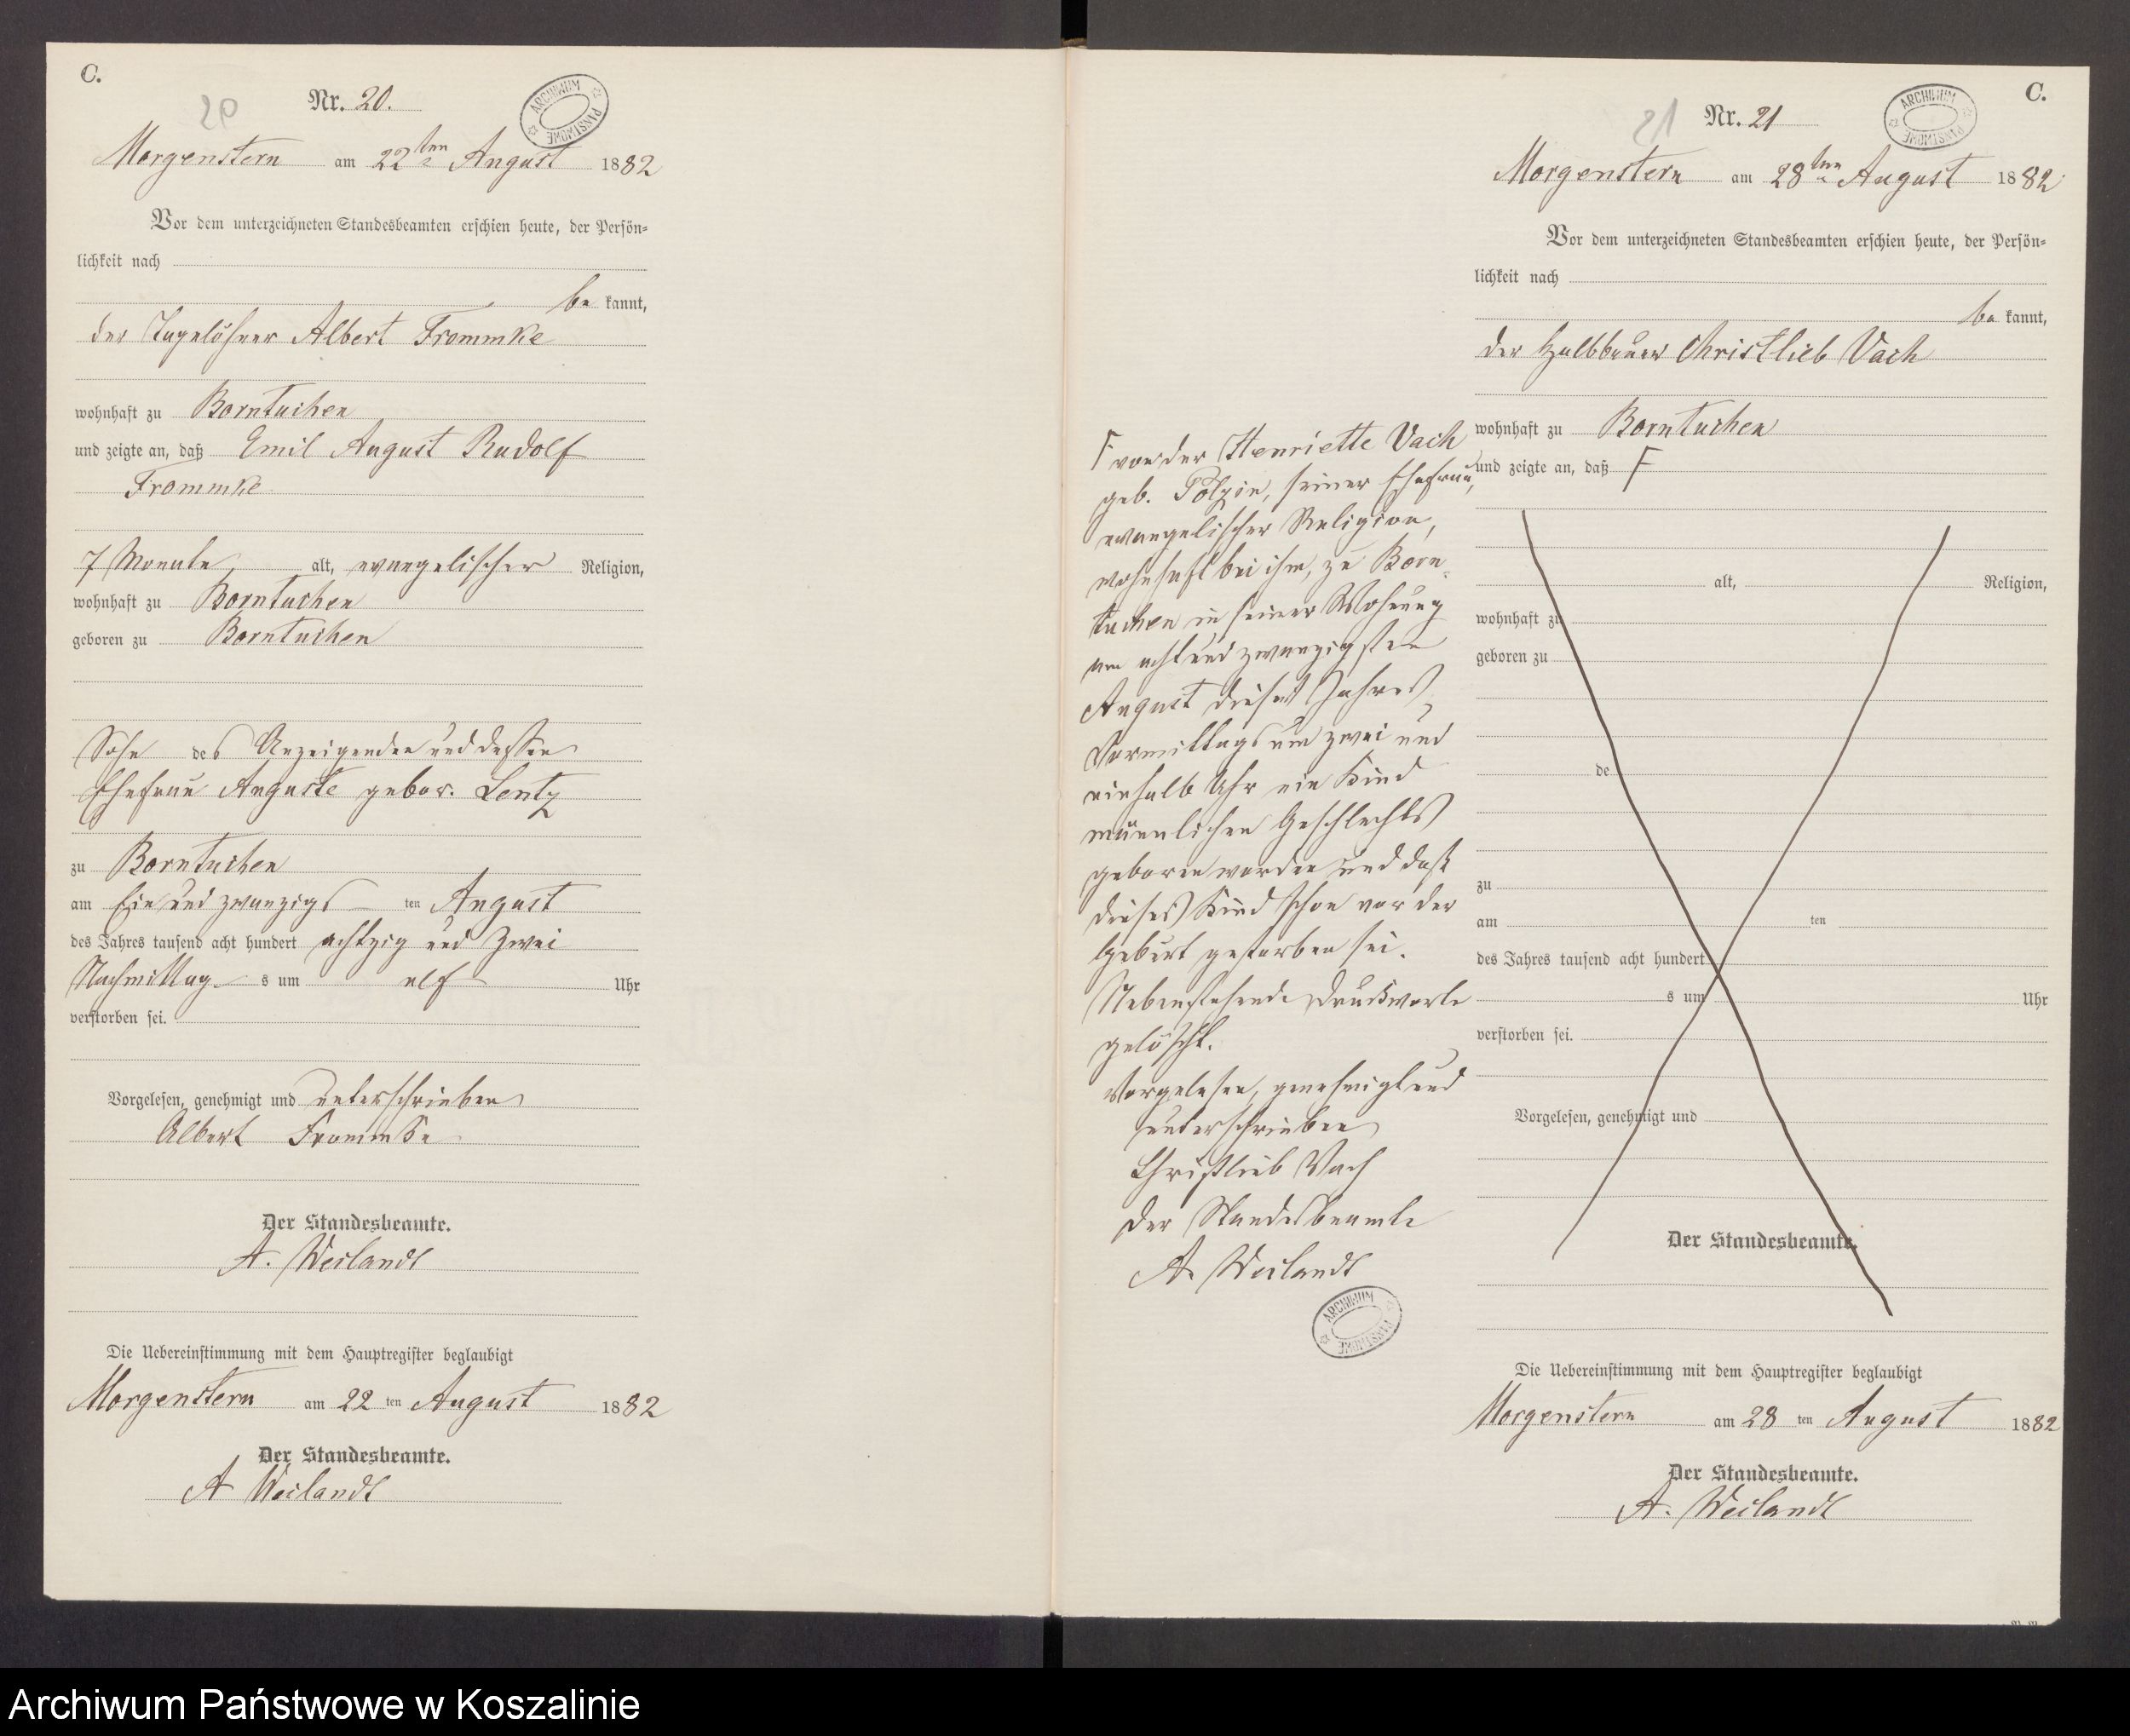 C.
20
Nr. 20.
ARCHIWUM PAŃSTWOWE
Morgenstern am 22ten August 1882
Vor dem unterzeichneten Standesbeamten erschien heute, der Persön-
lichkeit nach
be kannt,
der Tagelöhner Albert Frommke
wohnhaft zu Borntuchen
und zeigte an, daß Emil August Rudolf
Frommke
7 Monate alt, evangelischer Religion,
wohnhaft zu Borntuchen
geboren zu Borntuchen
Sohn des Anzeigenden und dessen
Ehefrau Auguste gebor. Lentz
zu Borntuchen
am Ein und zwanzigs ten August
des Jahres tausend acht hundert achtzig und zwei
Nachmittag s um elf Uhr
verstorben sei.
Vorgelesen, genehmigt und unterschrieben
Albert Frommke
Der Standesbeamte.
A. Weilandt
Die Uebereinstimmung mit dem Hauptregister beglaubigt
Morgenstern am 22 ten August 1882
Der Standesbeamte.
A Weilandt
C.
21
Nr. 21
ARCHIWUM PAŃSTWOWE
Morgenstern am 28ten August 1882
Vor dem unterzeichneten Standesbeamten erschien heute, der Persön-
lichkeit nach
be kannt,
der Halbbauer Christlieb Vach
wohnhaft zu Borntuchen
und zeigte an, daß F
alt, Religion,
wohnhaft zu
geboren zu
de
zu
am ten
des Jahres tausend acht hundert
s um Uhr
verstorben sei.
Vorgelesen, genehmigt und
Der Standesbeamte.
F von der Henriette Vach
geb. Pölzin, seiner Ehefrau,
evangelischer Religion,
wohnhaft bei ihm, zu Born-
tuchen in seiner Wohnung
am acht und zwanzigsten
August dieses Jahres,
Vormittags um zwei und
einhalb Uhr ein Kind
männlichen Geschlechts
geboren worden und daß
dieses Kind schon vor der
Geburt gestorben sei.
Nebenstehende Druckworte
gelöscht.
Vorgelesen, genehmigt und
unterschrieben
Christlieb Vach
Der Standesbeamte
A. Weilandt
ARCHIWUM PAŃSTWOWE
Die Uebereinstimmung mit dem Hauptregister beglaubigt
Morgenstern am 28 ten August 1882
Der Standesbeamte.
A. Weilandt
Archiwum Państwowe w Koszalinie